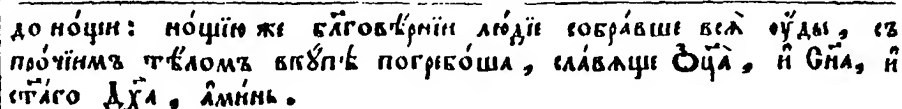 до но́щи: но́щїю же бл҃говѣ́рнїи лю́дїе собра́вше всѧ̀ ᲂу҆́ды, съ
про́чїимъ тѣ́ломъ вкꙋ́пѣ погребо́ша, сла́вѧще Ѻ҆ц҃а̀, и҆ Сн҃а, и҆
ст҃а́го Дх҃а, а҆ми́нь.